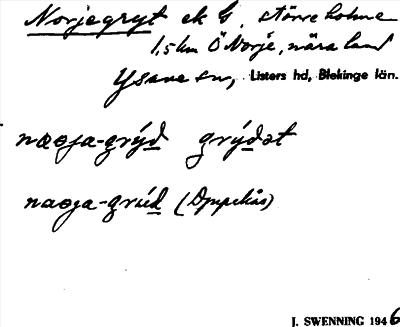 Norjegryt ek G, större holme
1,5 km Ö Norje, nära land
Ysane sn, Listers hd, Blekinge län.
naɷja-grýd grýdət
naɷja-grúd (Djupekås)
J. SWENNING 1946